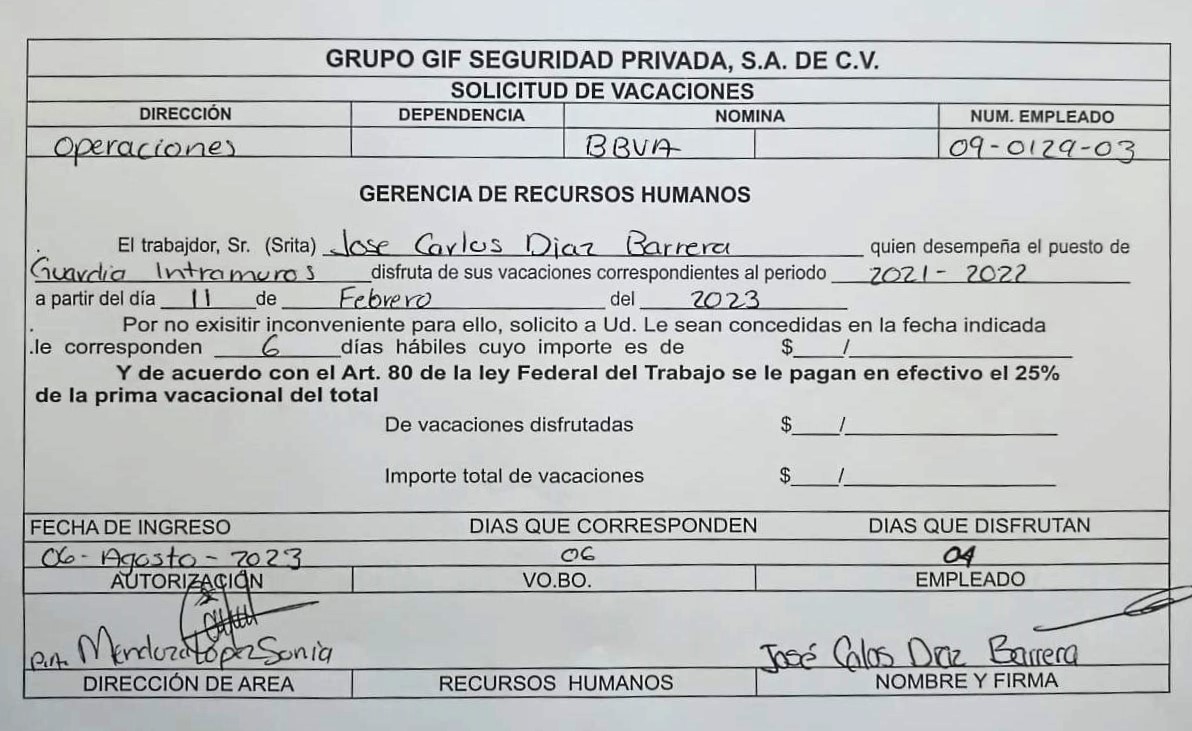 GRUPO GIF SEGURIDAD PRIVADA, S.A. DE C.V.
SOLICITUD DE VACACIONES
DIRECCIÓN DEPENDENCIA NOMINA NUM. EMPLEADO
Operaciones BBVA 09-0129-03
GERENCIA DE RECURSOS HUMANOS
. El trabajdor, Sr. (Srita) Jose Carlos Diaz Barrera quien desempeña el puesto de
Guardia Intramuros disfruta de sus vacaciones correspondientes al periodo 2021-2022
a partir del día 11 de Febrero del 2023
. Por no exisitir inconveniente para ello, solicito a Ud. Le sean concedidas en la fecha indicada
.le corresponden 6 días hábiles cuyo importe es de $ /
Y de acuerdo con el Art. 80 de la ley Federal del Trabajo se le pagan en efectivo el 25%
de la prima vacacional del total
De vacaciones disfrutadas $ /
Importe total de vacaciones $ /
FECHA DE INGRESO DIAS QUE CORRESPONDEN DIAS QUE DISFRUTAN
06-Agosto-2023 06 04
AUTORIZACIÓN VO.BO. EMPLEADO
Mendoza López Sonia José Calos Diaz Barrera
DIRECCIÓN DE AREA RECURSOS HUMANOS NOMBRE Y FIRMA